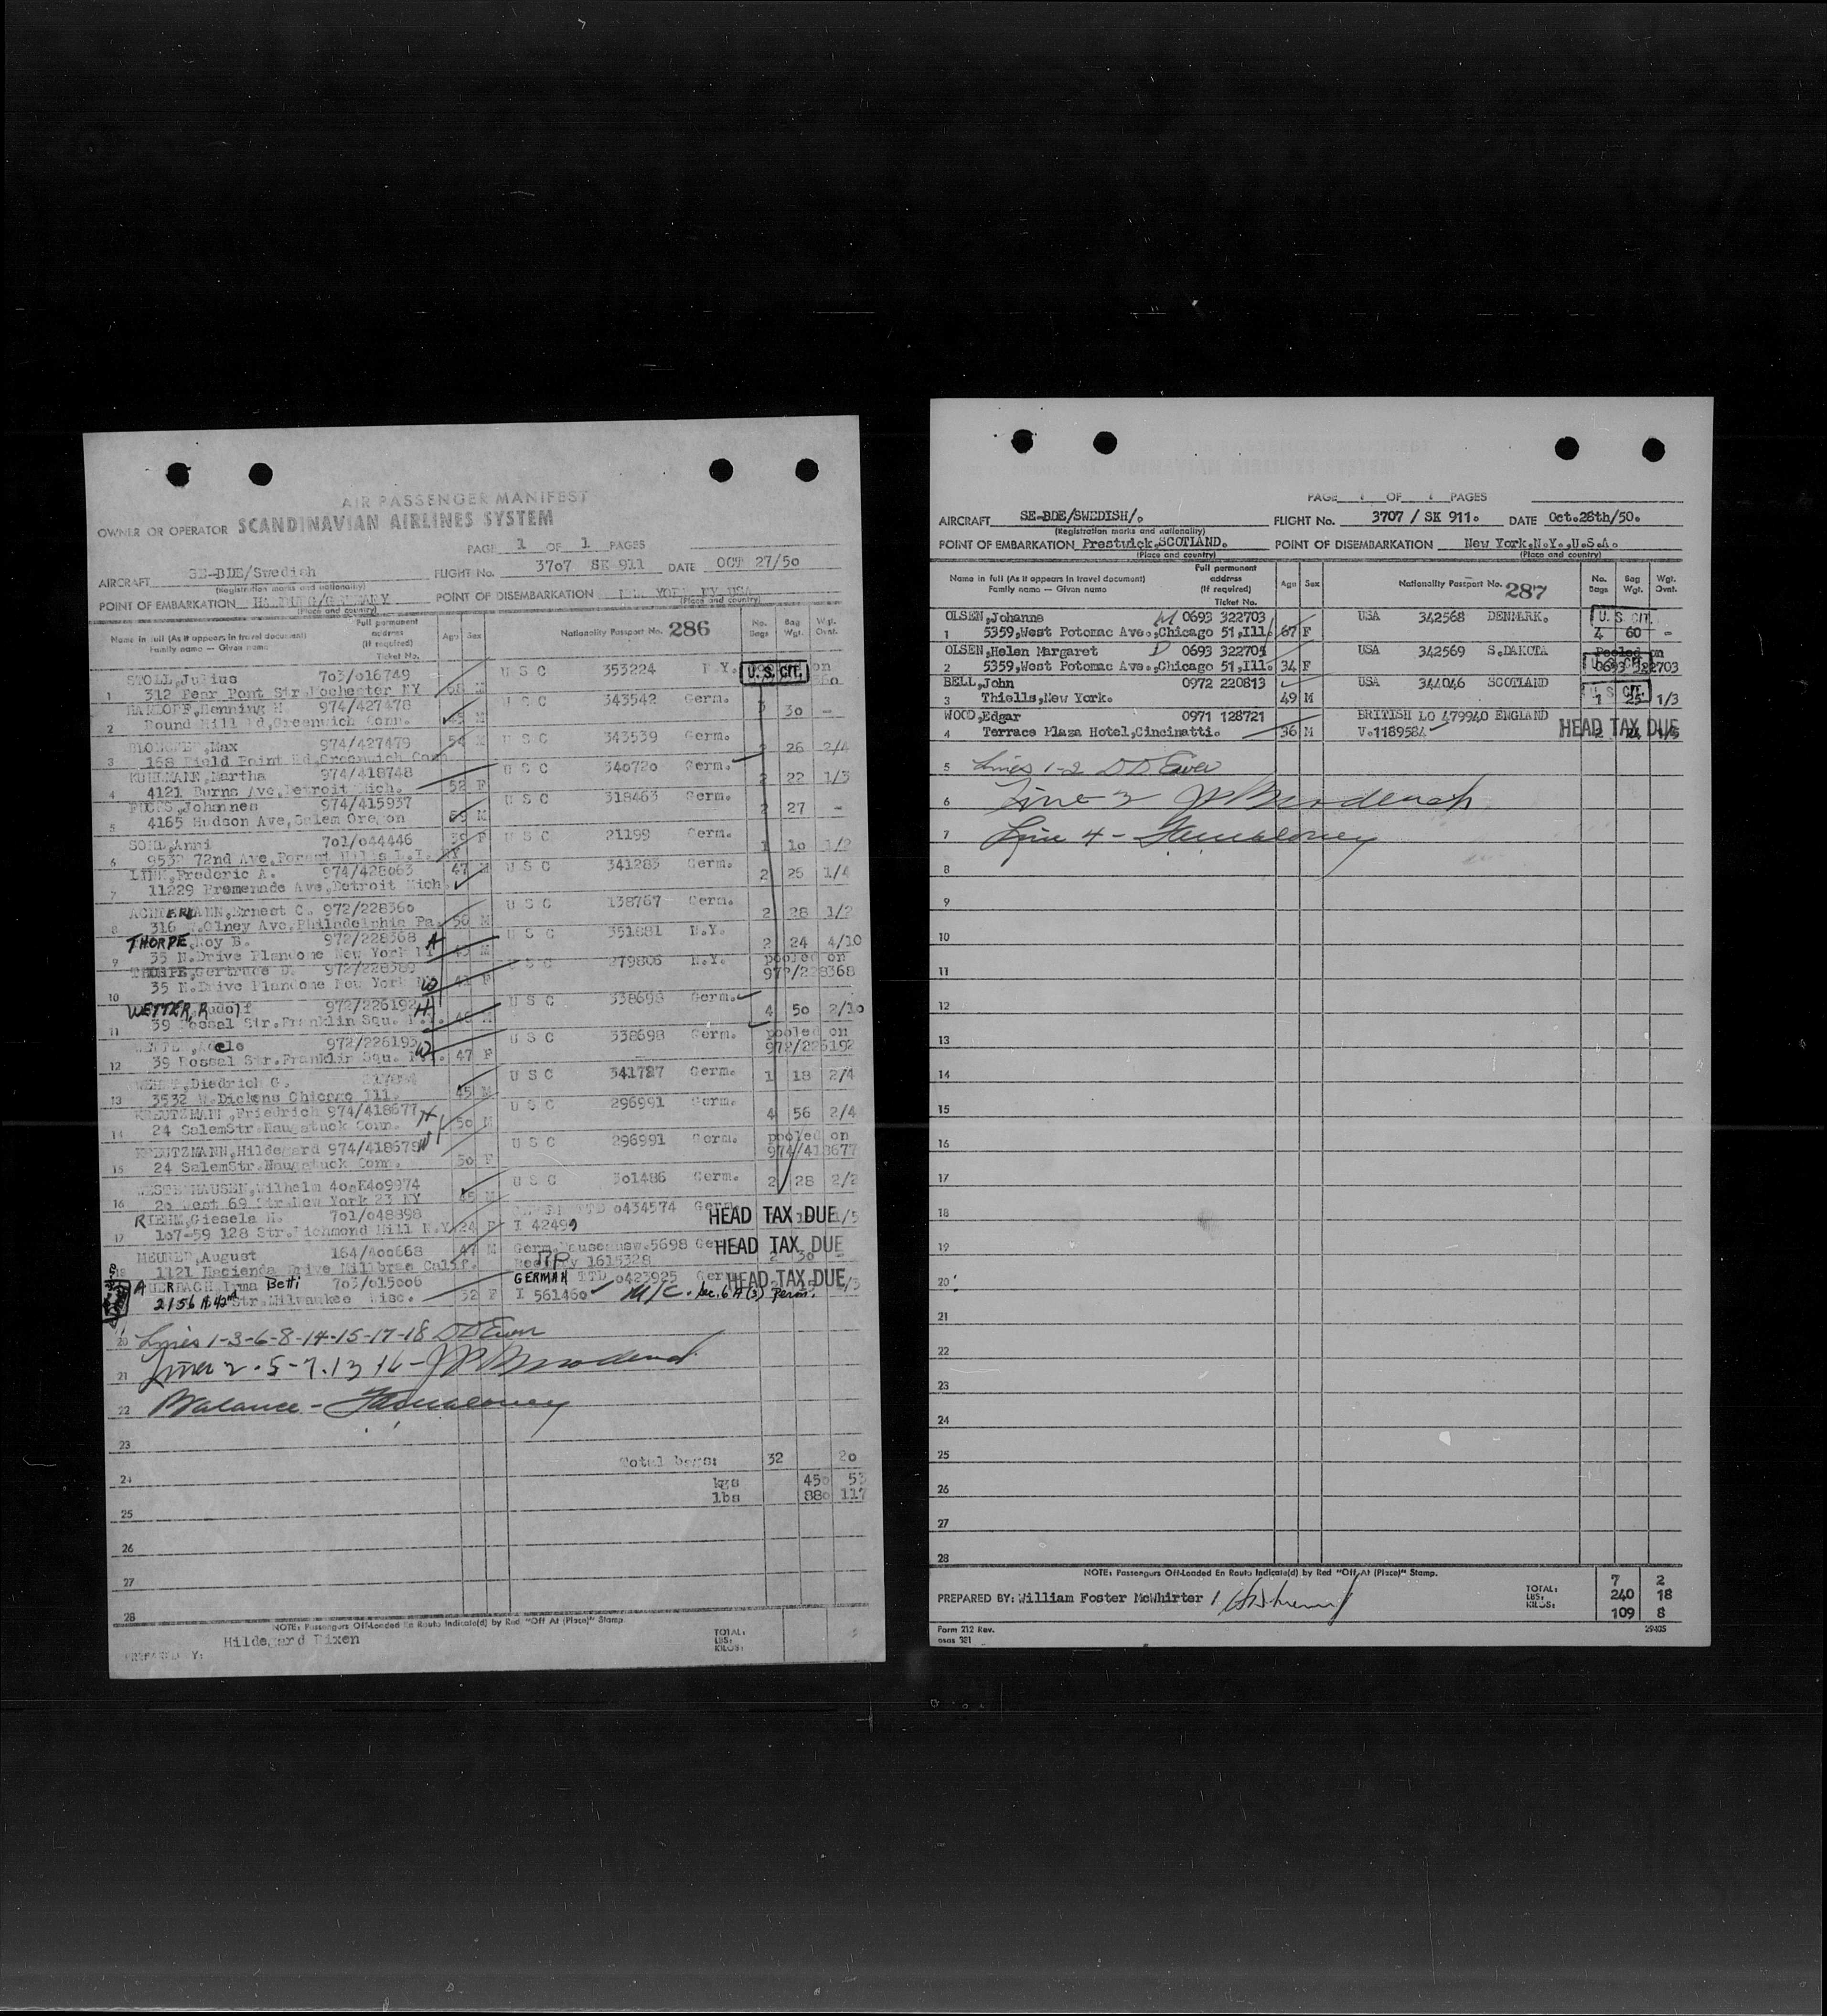 AIR PASSENGER MANIFEST
OWNER OR OPERATOR SCANDINAVIAN AIRLINES SYSTEM
PAGE 1 OF 1 PAGES
AIRCRAFT SE-BDE/Swedish FLIGHT No. 3707 SK 911 DATE OCT 27/50
(Registration marks and nationality)
POINT OF EMBARKATION POINT OF DISEMBARKATION
(Place and country) (Place and country)
Name in full (As it appears in travel document) Family name — Given name Full permanent address (If required) Ticket No. Age Sex Nationality Passport No. 286 No. Bags Bag Wgt. Wgt. Ovnt.
STOLL,Julius 703/016749 U S C 353224 N.Y.
U. S. CIT.
1 312 Pear Pont Str.Rochester NY M
Henning H. 974/427478 U S C 343542 Germ.
2 Round Hill Rd,Greenwich Conn. M 30 -
Max 974/427479 54 M U S C 343539 Germ.
3 168 Field Point Rd,Greenwich Conn 2 26 2/4
KUHLMANN,Martha 974/418748 U S C 340720 Germ.
4 4121 Burns Ave,Detroit Mich. 52 F 2 22 1/3
Johannes 974/415937 U S C 318463 Germ.
5 4165 Hudson Ave,Salem Oregon M 2 27 -
Anni 701/044446 39 F U S C 21199 Germ.
6 72nd Ave,Forest Hills L.I. NY 1 10 1/2
LINK,Frederic A. 974/428063 47 M U S C 341283 Germ.
7 11229 Promenade Ave,Detroit Mich. 2 25 1/4
ACHTERMANN,Ernest C. 972/228360 U S C 138767 Germ.
8 316 Olney Ave,Philadelphia Pa. 56 M 2 28 1/2
THORPE,Roy B. 972/228368 U S C 351881 N.Y.
9 35 N.Drive Plandome New York M 2 24 4/10
THORPE,Gertrude D. U S C 279806 N.Y. pooled on
10 35 N.Drive Plandome New York 41 F 972/228368
WETTER, Rudolf 972/226192 H U S C 338698 Germ.
11 39 Str.Franklin Squ. 4 50 2/10
972/226193 W U S C 338698 Germ. pooled on
12 39 Str.Franklin Squ. 47 F 972/226192
Diedrich G. U S C 341787 Germ. 1 18 2/4
13 3532 W.Dickens Chicago Ill. 45 M
KREUTZMANN,Friedrich 974/418677 H U S C 296991 Germ.
14 24 SalemStr.Naugatuck Conn. 50 M 4 56 2/4
KREUTZMANN,Hildegard 974/418678 W U S C 296991 Germ. pooled on
15 24 SalemStr.Naugatuck Conn. 50 F 974/418677
WESTENHAUSEN,Wilhelm U S C 301486 Germ. 2 28 2/2
16 20 West 69 Str.New York 23 NY M
RIEHM,Giesela H. 701/048898 TTD 0434574 Germ. HEAD TAX DUE
17 107-59 128 Str.Richmond Hill N.Y. 24 F I 42499
MEURER,August 164/400668 47 M 5698 HEAD TAX DUE
18 1121 Hacienda Drive Millbrae Calif. 1615328
AUERBACH,Irma Betti 703/015006 GERMAN TTD 0423925 Germ HEAD TAX DUE
2156 N.42nd Str.Milwaukee Wisc. 52 F I 561460 M/C. Sec. 6A(3) Perm.
20 Lines 1-3-6-8-14-15-17-18
21 Lines 2-5-7-13 16 -
22 Balance -
23
Total bags: 32 20
24 kgs 450 53
lbs 880 117
25
26
27
28
NOTE: Passengers Off-Loaded En Route Indicate(d) by Red "Off At (Place)" Stamp.
PREPARED BY: Hildegard Dixen TOTAL: LBS: KILOS:
PAGE 1 OF 1 PAGES
AIRCRAFT SE-BDE/SWEDISH/. FLIGHT No. 3707 / SK 911. DATE Oct.28th/50.
(Registration marks and nationality)
POINT OF EMBARKATION Prestwick,SCOTLAND. POINT OF DISEMBARKATION New York,N.Y.,U.S.A.
(Place and country) (Place and country)
Name in full (As it appears in travel document) Family name — Given name Full permanent address (If required) Ticket No. Age Sex Nationality Passport No. 287 No. Bags Bag Wgt. Wgt. Ovnt.
OLSEN,Johanne M 0693 322703 USA 342568 DENMARK. U. S. CIT.
1 5359,West Potomac Ave.,Chicago 51,Ill. 67 F 4 60 -
OLSEN,Helen Margaret D 0693 322704 USA 342569 S.DAKOTA Pooled on
2 5359,West Potomac Ave.,Chicago 51,Ill. 34 F U. S. CIT. 0693 322703
BELL,John 0972 220813 USA 344046 SCOTLAND U. S. CIT.
3 Thiells,New York. 49 M 1 25 1/3
WOOD,Edgar 0971 128721 BRITISH LO 479940 ENGLAND
4 Terrace Plaza Hotel,Cincinatti. 36 M V.1189584 HEAD TAX DUE
5 Lines 1-2
6 Line 3
7 Line 4 -
8
9
10
11
12
13
14
15
16
17
18
19
20
21
22
23
24
25
26
27
28
NOTE: Passengers Off-Loaded En Route Indicate(d) by Red "Off At (Place)" Stamp.
PREPARED BY: William Foster McWhirter
TOTAL: 7 2
LBS: 240 18
KILOS: 109 8
Form 212 Rev.
osas 321
29405